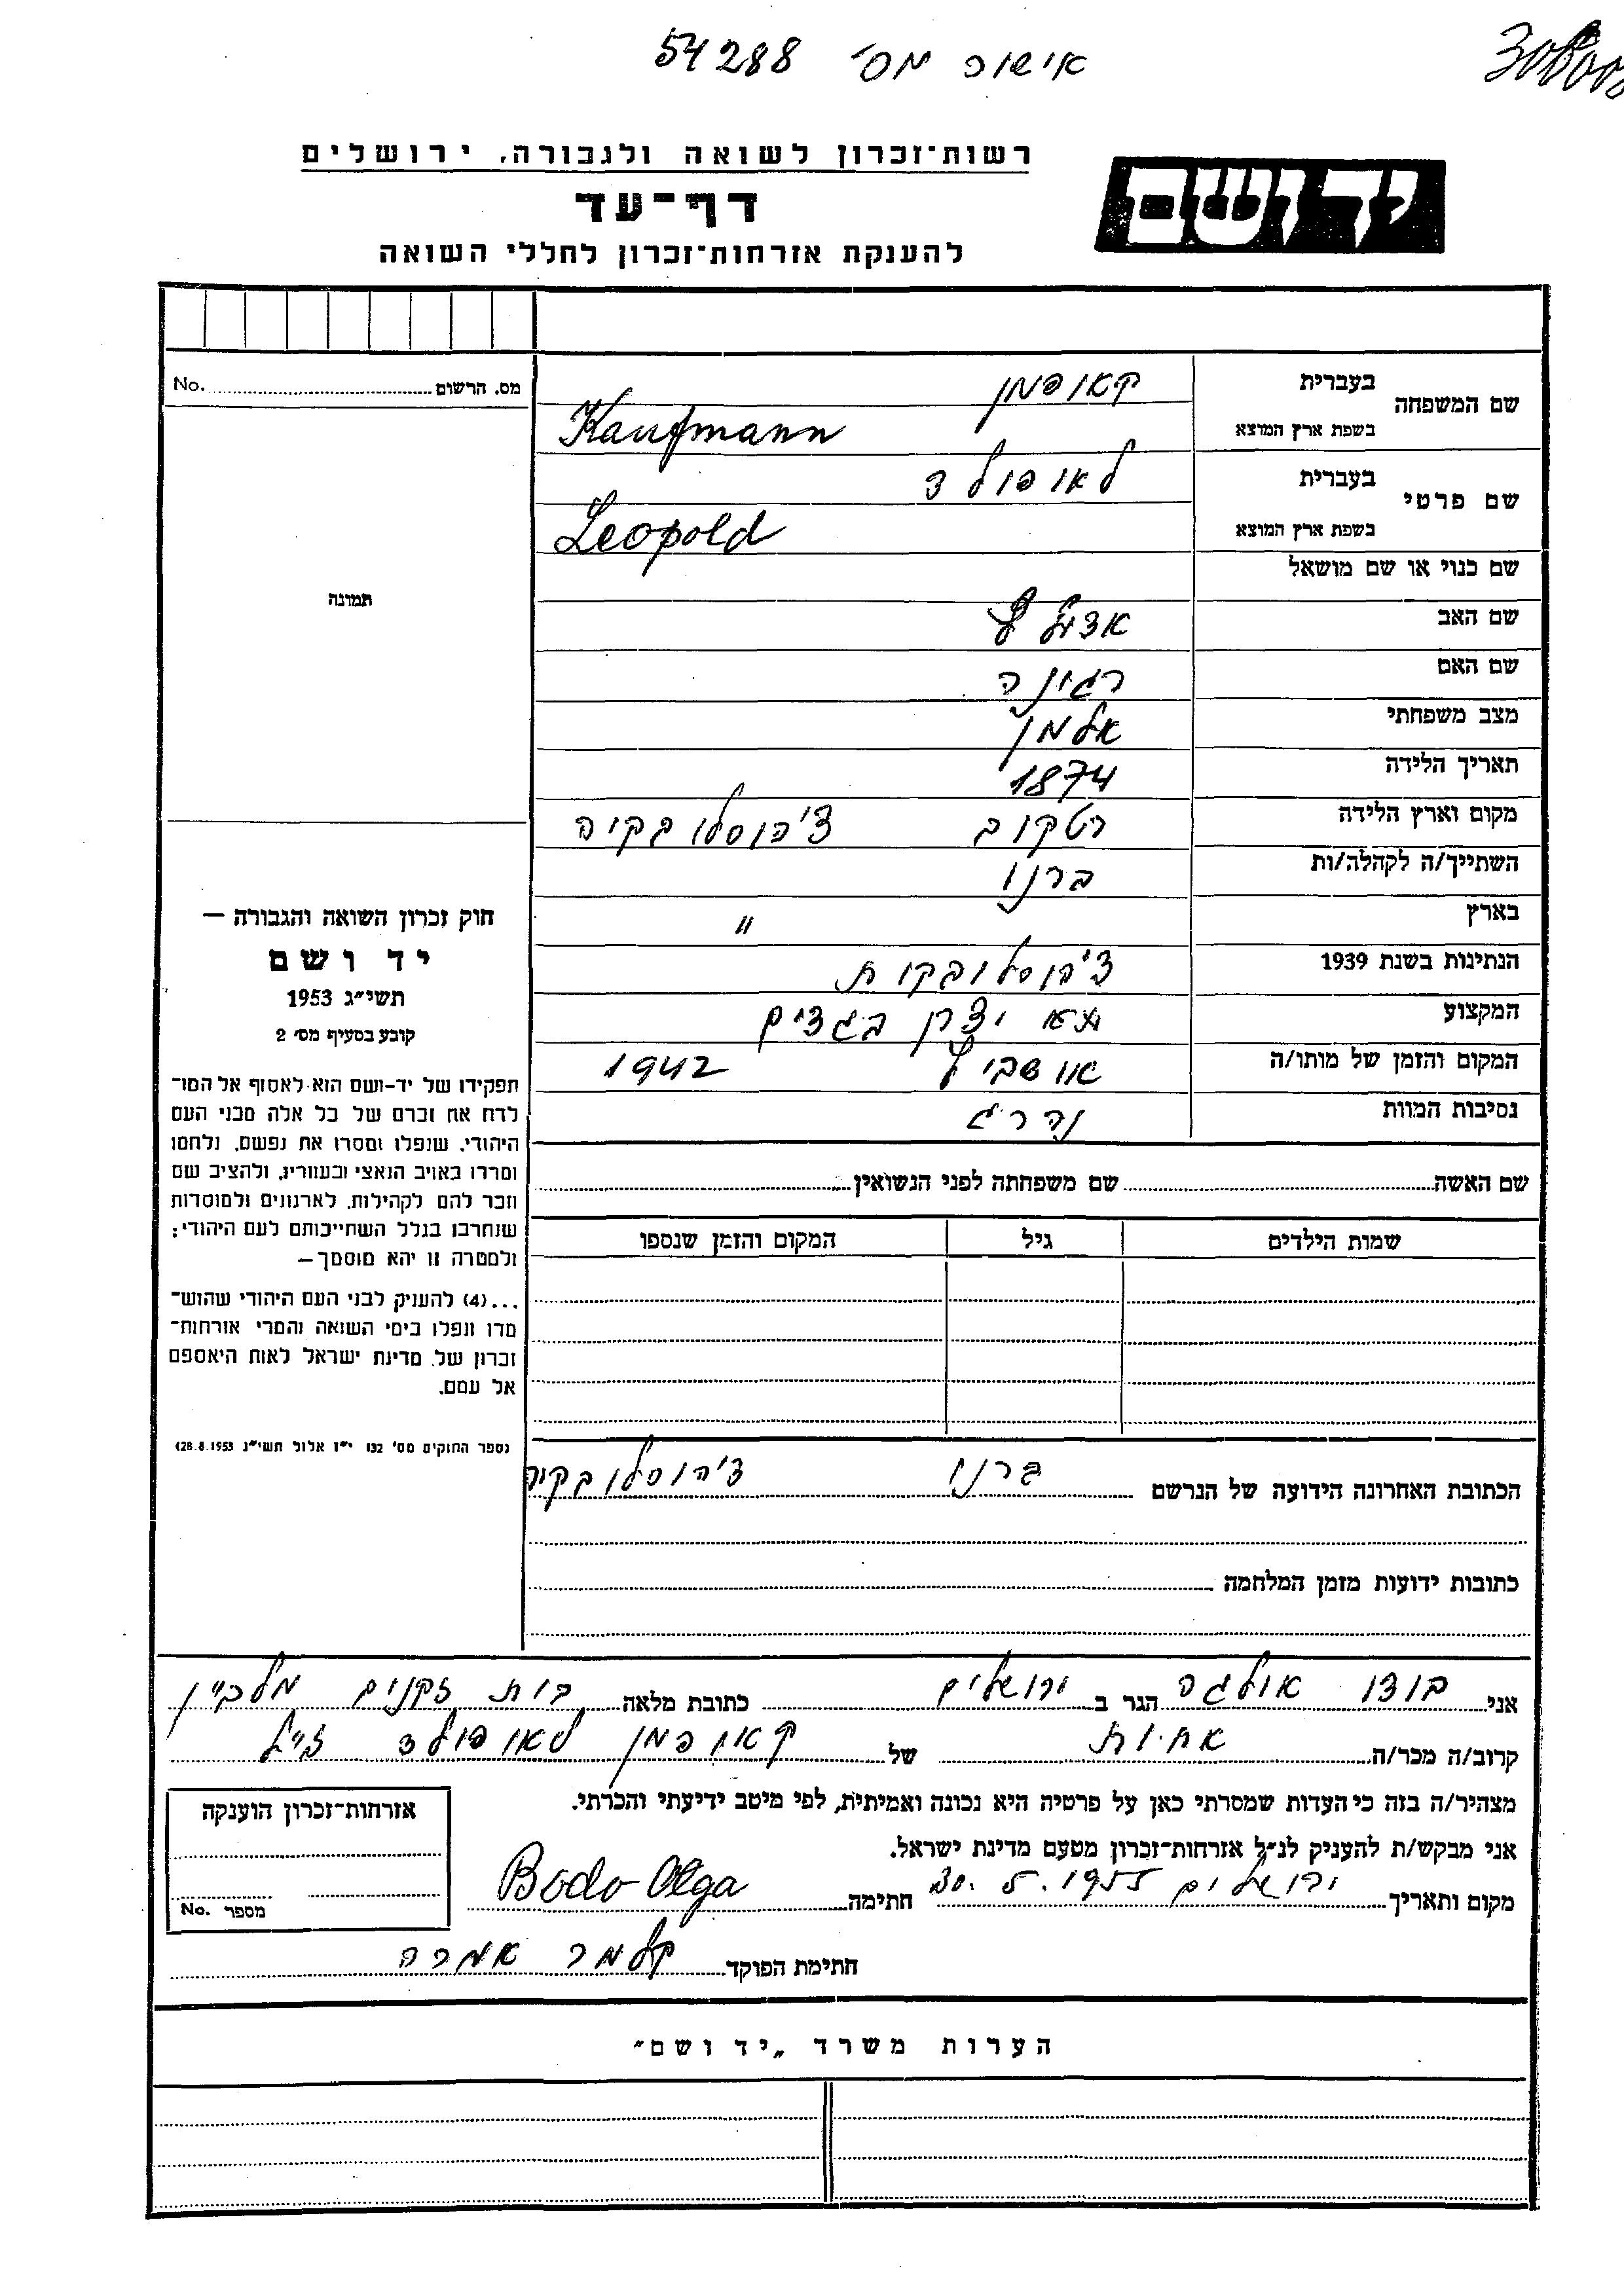 אישור מס' 54288
רשות־זכרון לשואה ולגבורה, ירושלים
יד ושם
דף־עד
להענקת אזרחות־זכרון לחללי השואה
מס. הרשום No.
שם המשפחה
בעברית קאופמן
בשפת ארץ המוצא Kaufmann
שם פרטי
בעברית לאופולד
בשפת ארץ המוצא Leopold
שם כנוי או שם מושאל
שם האב
שם האם רגינה
מצב משפחתי אלמן
תאריך הלידה 1874
מקום וארץ הלידה רטקוב צ'כוסלובקיה
השתייך/ה לקהלה/ות ברנו
בארץ "
הנתינות בשנת 1939 צ'כוסלובקית
המקצוע יצרן בגדים
המקום והזמן של מותו/ה אושביץ 1942
נסיבות המוות נהרג
תמונה
חוק זכרון השואה והגבורה —
יד ושם
תשי״ג 1953
קובע בסעיף מס׳ 2
תפקידו של יד-ושם הוא לאסוף אל המו־
לדת את זכרם של כל אלה מבני העם
היהודי, שנפלו ומסרו את נפשם, נלחמו
ומרדו באויב הנאצי ובעוזריו, ולהציב שם
וזכר להם לקהילות, לארגונים ולמוסדות
שנחרבו בגלל השתייכותם לעם היהודי;
ולמטרה זו יהא מוסמך—
...(4) להעניק לבני העם היהודי שהוש־
מדו ונפלו בימי השואה והמרי אזרחות־
זכרון של מדינת ישראל לאות היאספם
אל עמם.
(ספר החוקים מס׳ 132 י״ז אלול תשי״ג 28.8.1953)
שם האשה שם משפחתה לפני הנשואין
שמות הילדים גיל המקום והזמן שנספו
הכתובת האחרונה הידועה של הנרשם ברנו צ'כוסלובקיה
כתובות ידועות מזמן המלחמה
אני בודו אולגה הגר ב ירושלים כתובת מלאה בית זקנים מלבי"ן
קרוב/ה מכר/ה אחות של קאופמן לאופולד ז"ל
מצהיר/ה בזה כי העדות שמסרתי כאן על פרטיה היא נכונה ואמיתית, לפי מיטב ידיעתי והכרתי.
אני מבקש/ת להעניק לנ״ל אזרחות־זכרון מטעם מדינת ישראל.
מקום ותאריך ירושלים 30.5.1955 חתימה Bodo Olga
חתימת הפוקד קלמר אמרה
אזרחות־זכרון הוענקה
מספר No.
הערות משרד „יד ושם״